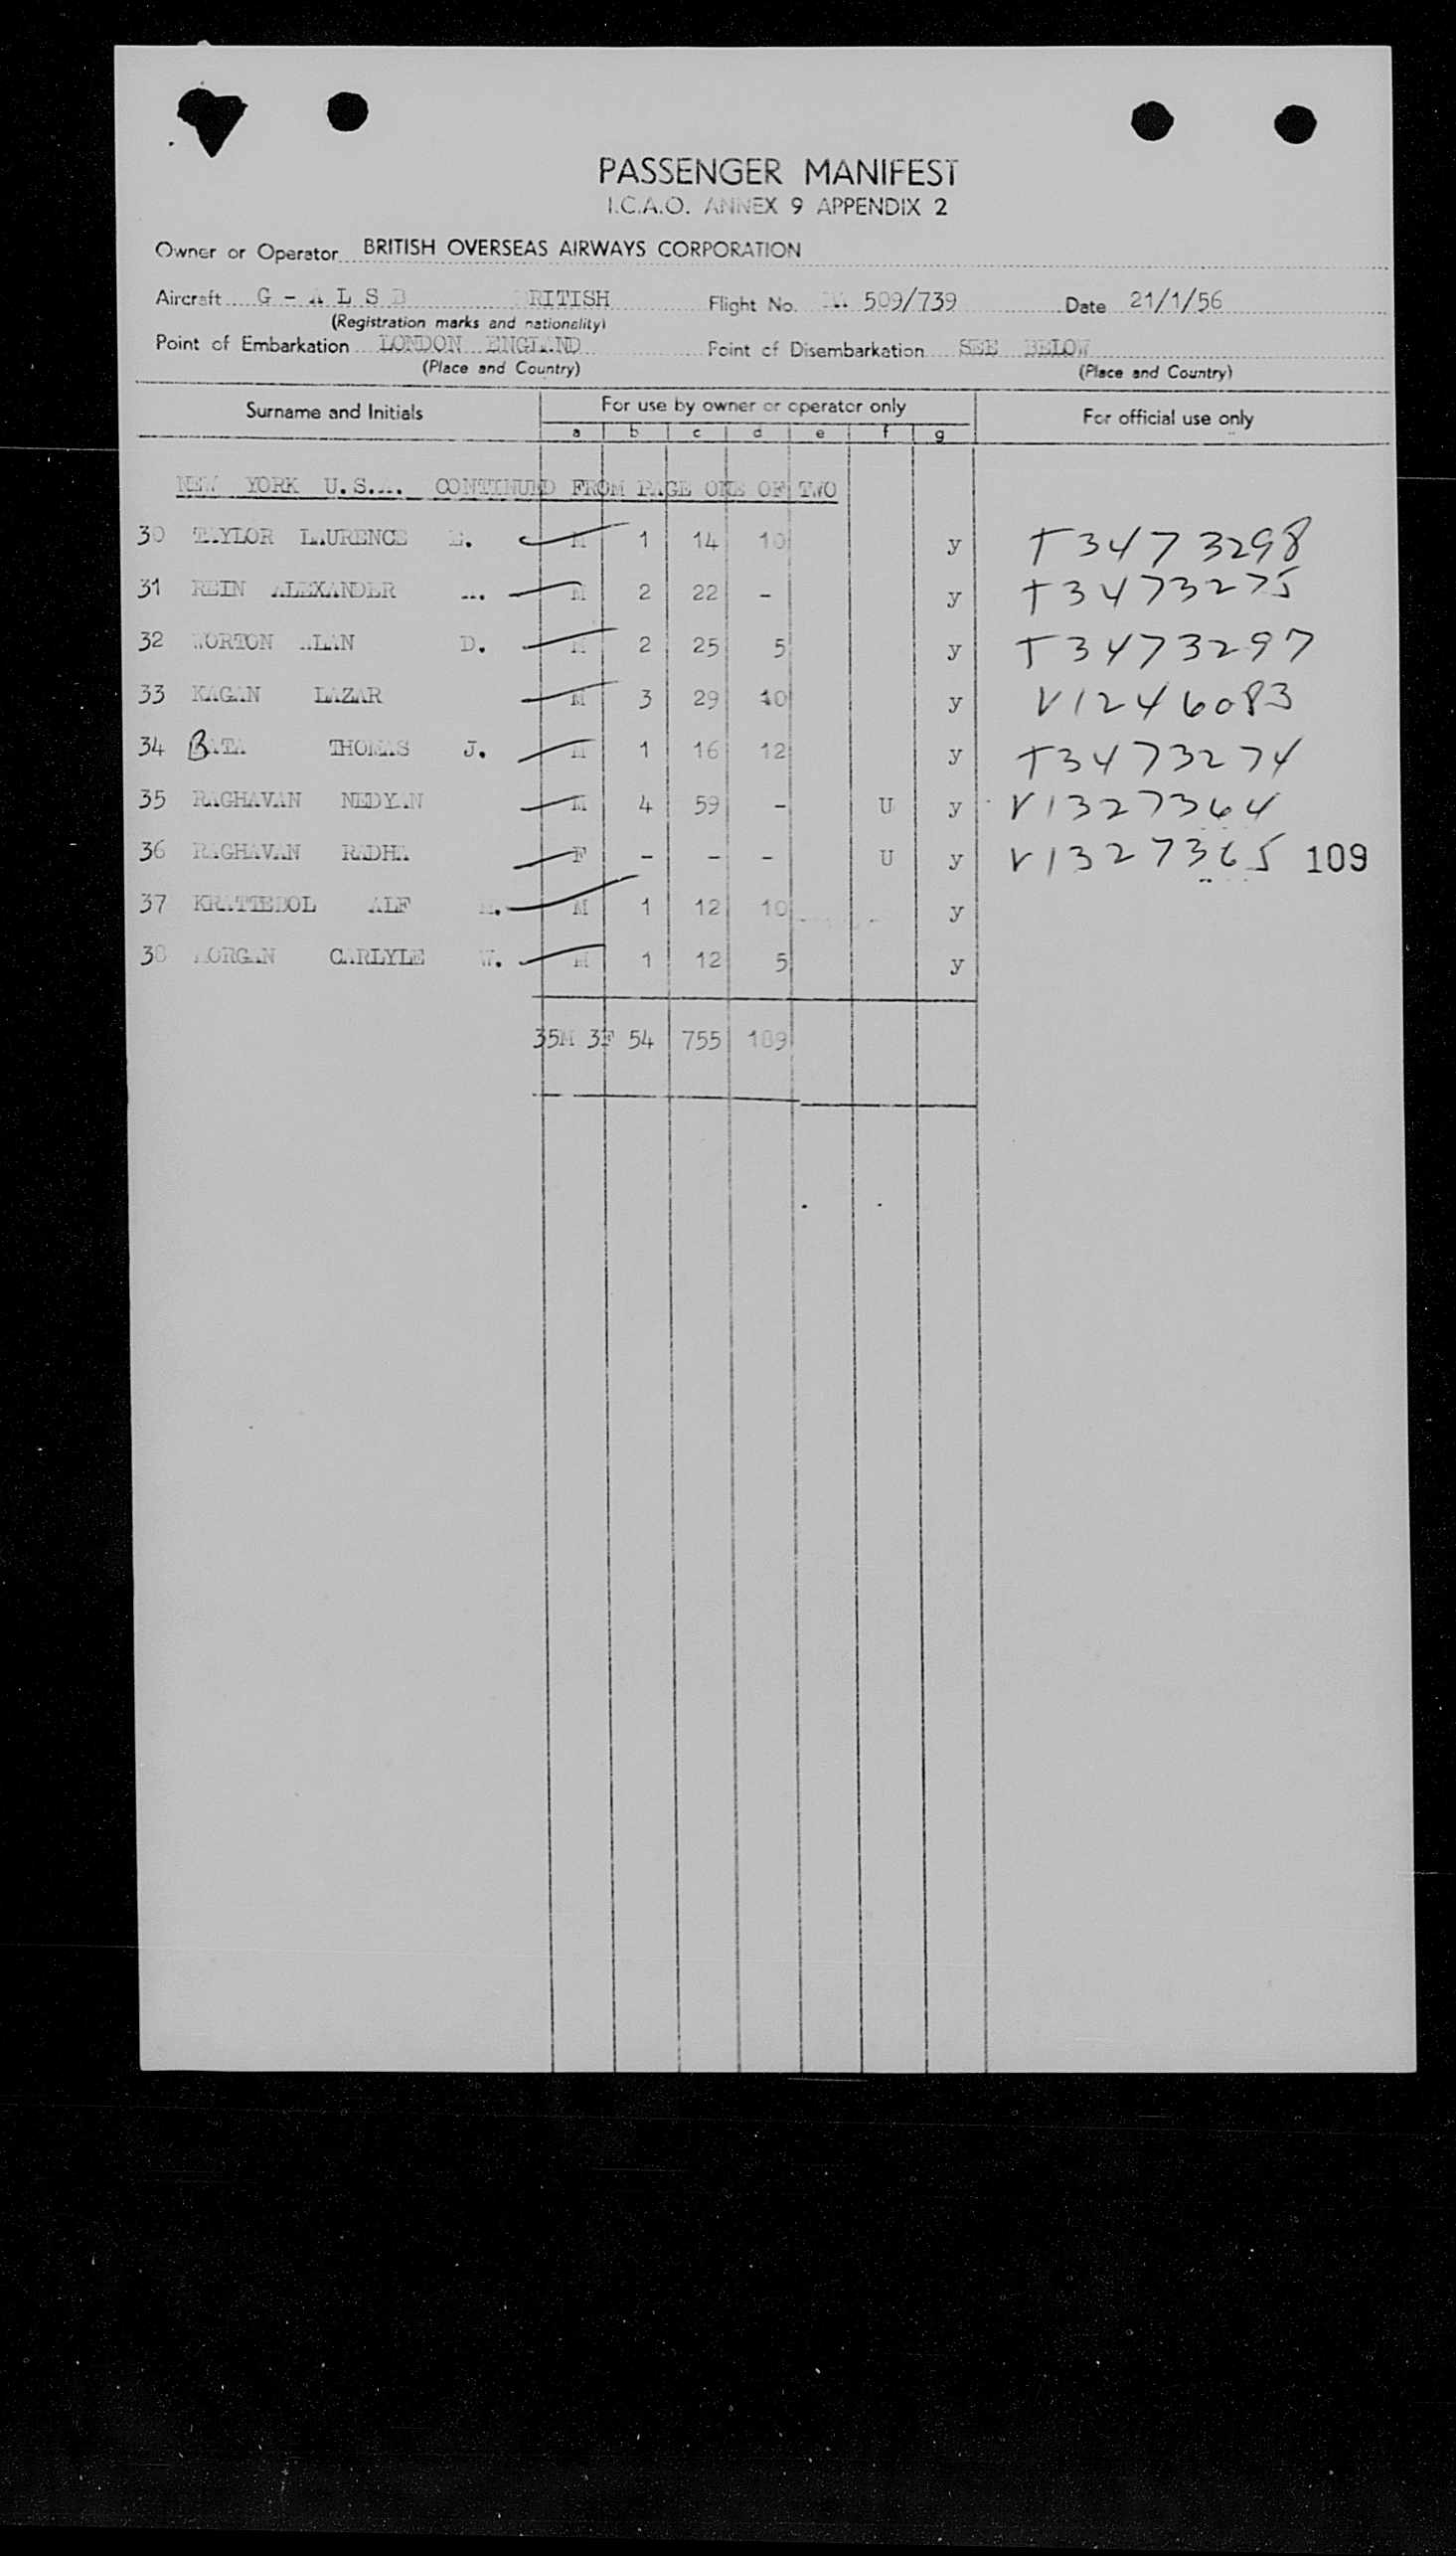 PASSENGER MANIFEST
I.C.A.O. ANNEX 9 APPENDIX 2
Owner or Operator BRITISH OVERSEAS AIRWAYS CORPORATION
Aircraft G - A L S B BRITISH Flight No. 509/739 Date 21/1/56
(Registration marks and nationality)
Point of Embarkation LONDON ENGLAND Point of Disembarkation SEE BELOW
(Place and Country) (Place and Country)
Surname and Initials For use by owner or operator only For official use only
a b c d e f g
NEW YORK U.S.A. CONTINUED FROM PAGE ONE OF TWO
30 TAYLOR LAURENCE E. M 1 14 10 y T3473298
31 REIN ALEXANDER M 2 22 - y T3473275
32 ALAN D. M 2 25 5 y T3473297
33 KAGAN LAZAR M 3 29 10 y V1246083
34 BATA THOMAS J. M 1 16 12 y T3473274
35 RAGHAVAN NEDYAN M 4 59 - U y V1327364
36 RAGHAVAN RADHA F - - - U y V1327365 109
37 ALF M 1 12 10 y
38 MORGAN CARLYLE W. M 1 12 5 y
35M 3F 54 755 189